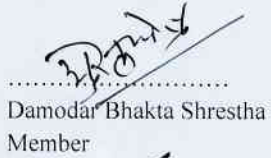 ....................................
Damodar Bhakta Shrestha
Member